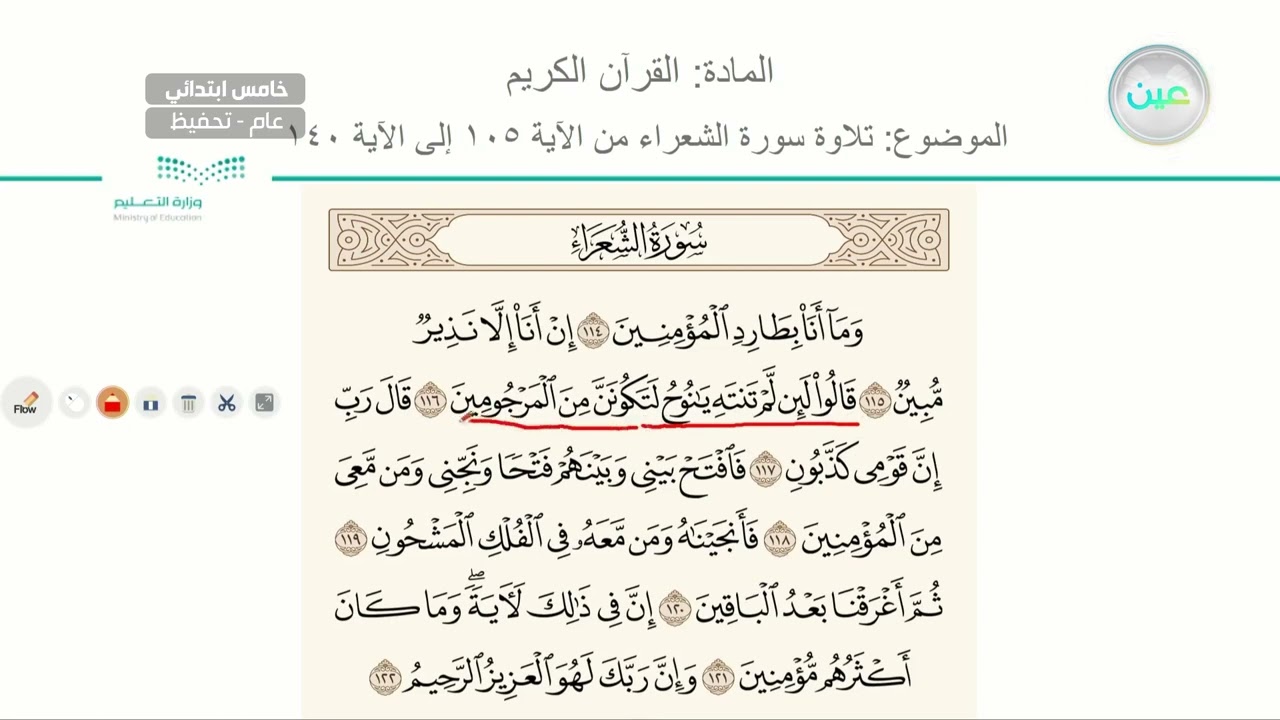 المادة: القرآن الكريم
خامس ابتدائي
عام - تحفيظ
عين
الموضوع: تلاوة سورة الشعراء من الآية ١٠٥ إلى الآية ١٤٠
وزارة التعـــليم
Ministry of Education
سُورَةُ الشُّعَرَاءِ
وَمَآ أَنَا۠ بِطَارِدِ ٱلۡمُؤۡمِنِينَ ١١٤ إِنۡ أَنَا۠ إِلَّا نَذِيرٞ
مُّبِينٞ ١١٥ قَالُواْ لَئِن لَّمۡ تَنتَهِ يَٰنُوحُ لَتَكُونَنَّ مِنَ ٱلۡمَرۡجُومِينَ ١١٦ قَالَ رَبِّ
إِنَّ قَوۡمِي كَذَّبُونِ ١١٧ فَٱفۡتَحۡ بَيۡنِي وَبَيۡنَهُمۡ فَتۡحٗا وَنَجِّنِي وَمَن مَّعِيَ
مِنَ ٱلۡمُؤۡمِنِينَ ١١٨ فَأَنجَيۡنَٰهُ وَمَن مَّعَهُۥ فِي ٱلۡفُلۡكِ ٱلۡمَشۡحُونِ ١١٩
ثُمَّ أَغۡرَقۡنَا بَعۡدُ ٱلۡبَاقِينَ ١٢٠ إِنَّ فِي ذَٰلِكَ لَأٓيَةٗۖ وَمَا كَانَ
أَكۡثَرُهُم مُّؤۡمِنِينَ ١٢١ وَإِنَّ رَبَّكَ لَهُوَ ٱلۡعَزِيزُ ٱلرَّحِيمُ ١٢٢
Flow